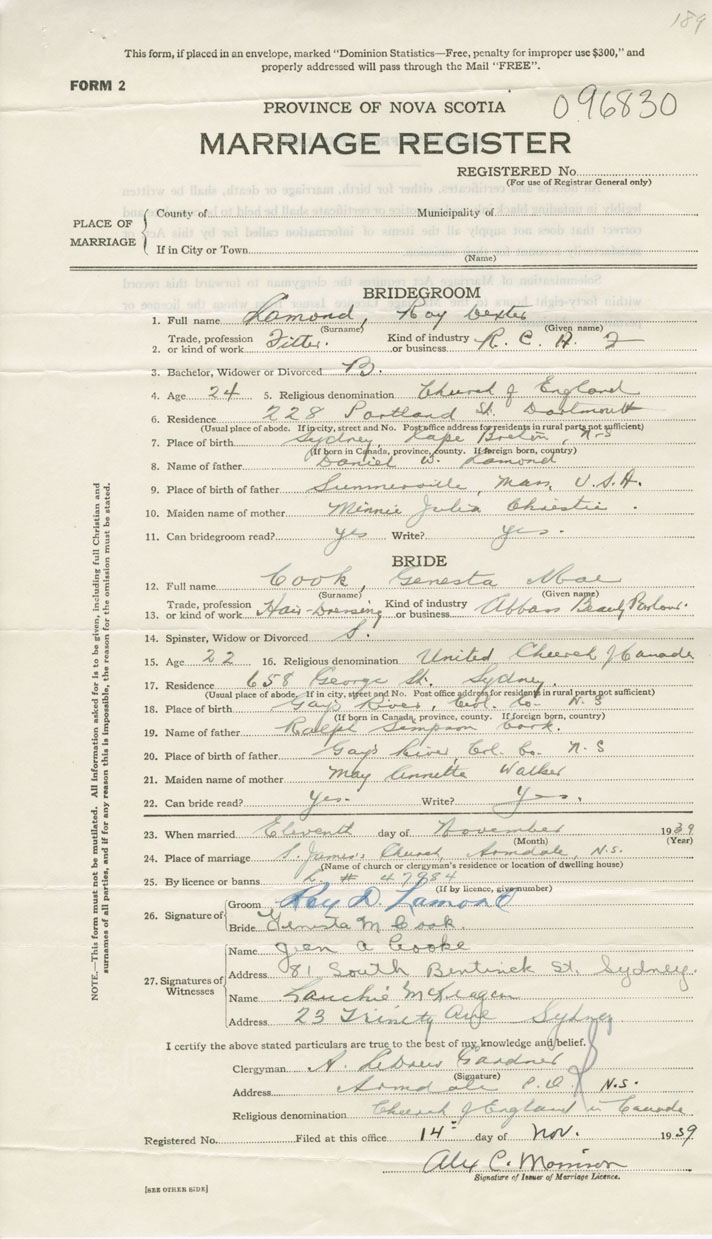 189
This form, if placed in an envelope, marked "Dominion Statistics—Free, penalty for improper use $300," and
properly addressed will pass through the Mail "FREE".
FORM 2
PROVINCE OF NOVA SCOTIA
096830
MARRIAGE REGISTER
REGISTERED No.
(For use of Registrar General only)
PLACE OF MARRIAGE
County of Municipality of
If in City or Town
(Name)
BRIDEGROOM
1. Full name Lamond, Roy Dexter
(Surname) (Given name)
2. Trade, profession or kind of work Fitter. Kind of industry or business R. C. A. F
3. Bachelor, Widower or Divorced B.
4. Age 24 5. Religious denomination Church of England
6. Residence 228 Portland St. Dartmouth
(Usual place of abode. If in city, street and No. Post office address for residents in rural parts not sufficient)
7. Place of birth Sydney, Cape Breton, N.S
(If born in Canada, province, county. If foreign born, country)
8. Name of father Daniel W. Lamond
9. Place of birth of father Summerville, Mass, U.S.A.
10. Maiden name of mother Minnie Julia Christie.
11. Can bridegroom read? yes Write? yes.
BRIDE
12. Full name Cook, Genesta Mae
(Surname) (Given name)
13. Trade, profession or kind of work Hair-Dressing Kind of industry or business Abbass Beauty Parlour.
14. Spinster, Widow or Divorced S.
15. Age 22 16. Religious denomination United Church of Canada
17. Residence 658 George St. Sydney.
(Usual place of abode. If in city, street and No. Post office address for residents in rural parts not sufficient)
18. Place of birth Gays River, Col. Co. N.S
(If born in Canada, province, county. If foreign born, country)
19. Name of father Ralph Simpson Cook.
20. Place of birth of father Gays River, Col. Co. N.S
21. Maiden name of mother May Annette Walker
22. Can bride read? Yes. Write? Yes.
23. When married Eleventh day of November 1939
(Month) (Year)
24. Place of marriage S. James Church, Armdale, N.S.
(Name of church or clergyman's residence or location of dwelling house)
25. By licence or banns L # 47984
(If by licence, give number)
26. Signature of
Groom Roy D. Lamond
Bride Genesta M. Cook.
27. Signatures of Witnesses
Name Jean A Cooke
Address 81 South Bentinck St. Sydney.
Name Lauchie McKeagan
Address 23 Trinity Ave Sydney
I certify the above stated particulars are true to the best of my knowledge and belief.
Clergyman A. LeDrew Gardner
(Signature)
Address Armdale P.O. N.S.
Religious denomination Church of England in Canada
Registered No. Filed at this office 14 day of Nov. 1939.
Alex C. Morrison
Signature of Issuer of Marriage Licence.
[SEE OTHER SIDE]
NOTE.—This form must not be mutilated. All information asked for is to be given, including full Christian and
surnames of all parties, and if for any reason this is impossible, the reason for the omission must be stated.